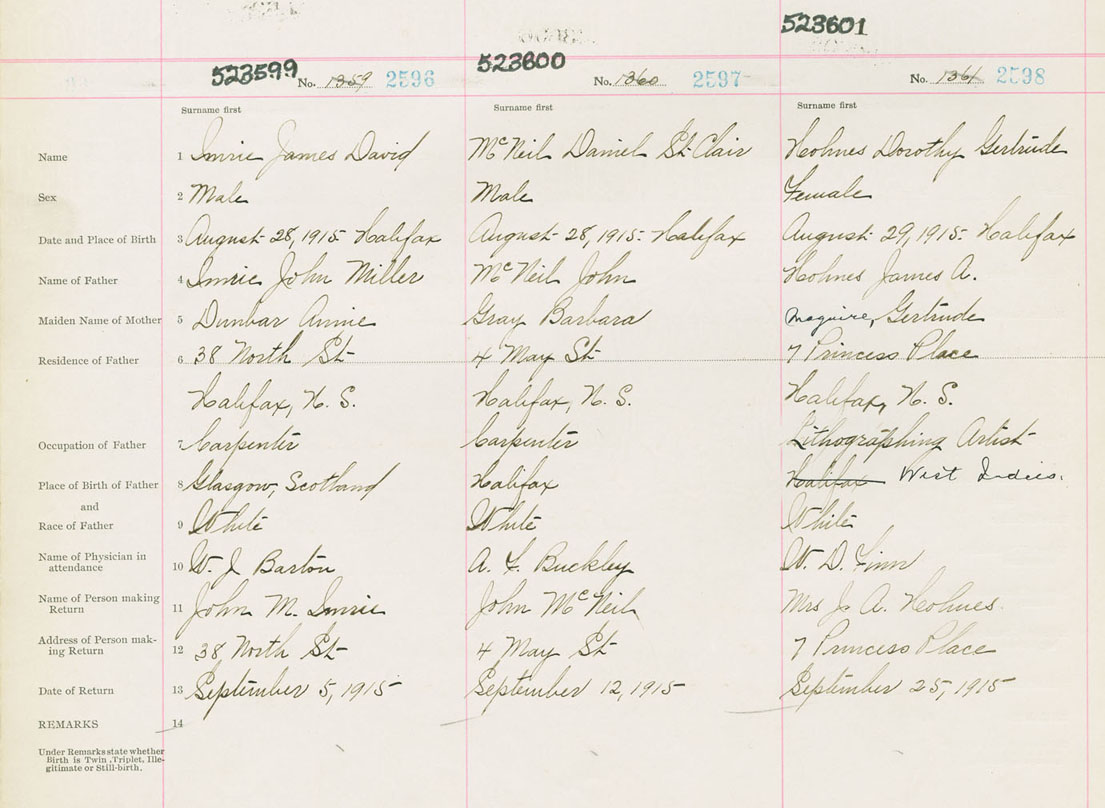 523599
523600
523601
No. 1359 2596
No. 1360 2597
No. 1361 2598
Surname first
Surname first
Surname first
Name 1 Imrie James David McNeil Daniel St. Clair Holmes Dorothy Gertrude
Sex 2 Male Male Female
Date and Place of Birth 3 August 28, 1915 - Halifax August 28, 1915 - Halifax August 29, 1915 - Halifax
Name of Father 4 Imrie John Miller McNeil John Holmes James A.
Maiden Name of Mother 5 Dunbar Annie Gray Barbara Maguire, Gertrude
Residence of Father 6 38 North St 4 May St 7 Princess Place
Halifax, N. S. Halifax, N. S. Halifax, N. S.
Occupation of Father 7 Carpenter Carpenter Lithographing Artist
Place of Birth of Father 8 Glasgow, Scotland Halifax Halifax West Indies.
and
Race of Father 9 White White White
Name of Physician in
attendance 10 W. J. Barton A. F. Buckley W. D. Finn
Name of Person making
Return 11 John M. Imrie John McNeil Mrs J. A. Holmes.
Address of Person mak-
ing Return 12 38 North St 4 May St 7 Princess Place
Date of Return 13 September 5, 1915 September 12, 1915 September 25, 1915
REMARKS 14
Under Remarks state whether
Birth is Twin, Triplet, Ille-
gitimate or Still-birth.